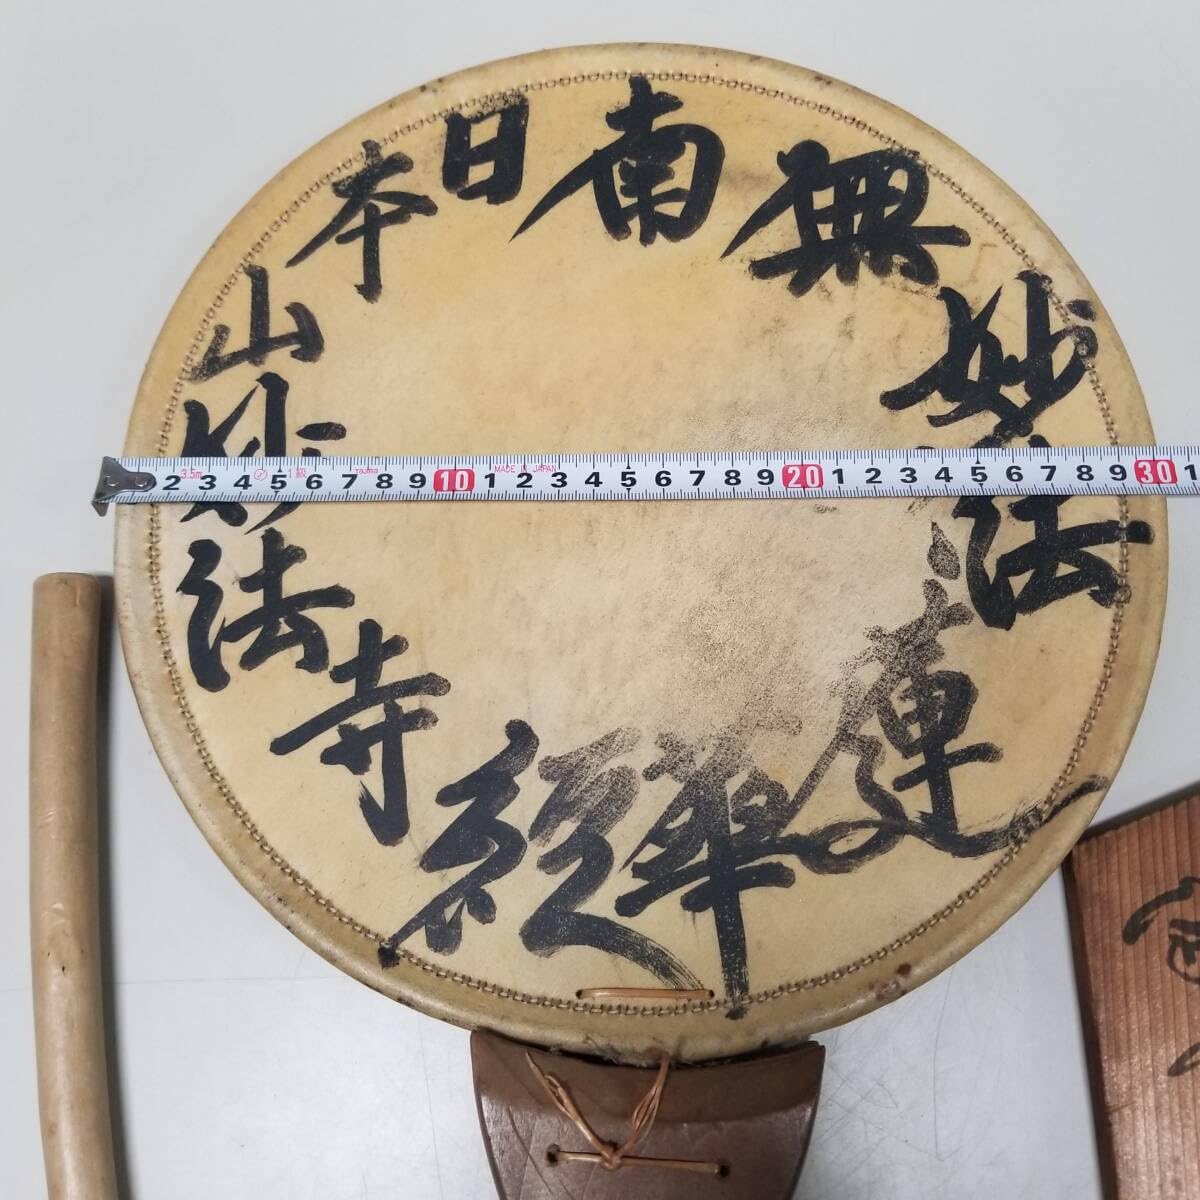 南無妙法蓮華経
日本山妙法寺
2 3 4 5 6 7 8 9 10 1 2 3 4 5 6 7 8 9 20 1 2 3 4 5 6 7 8 9 30 1
3.5m 1級 Tajima MADE IN JAPAN